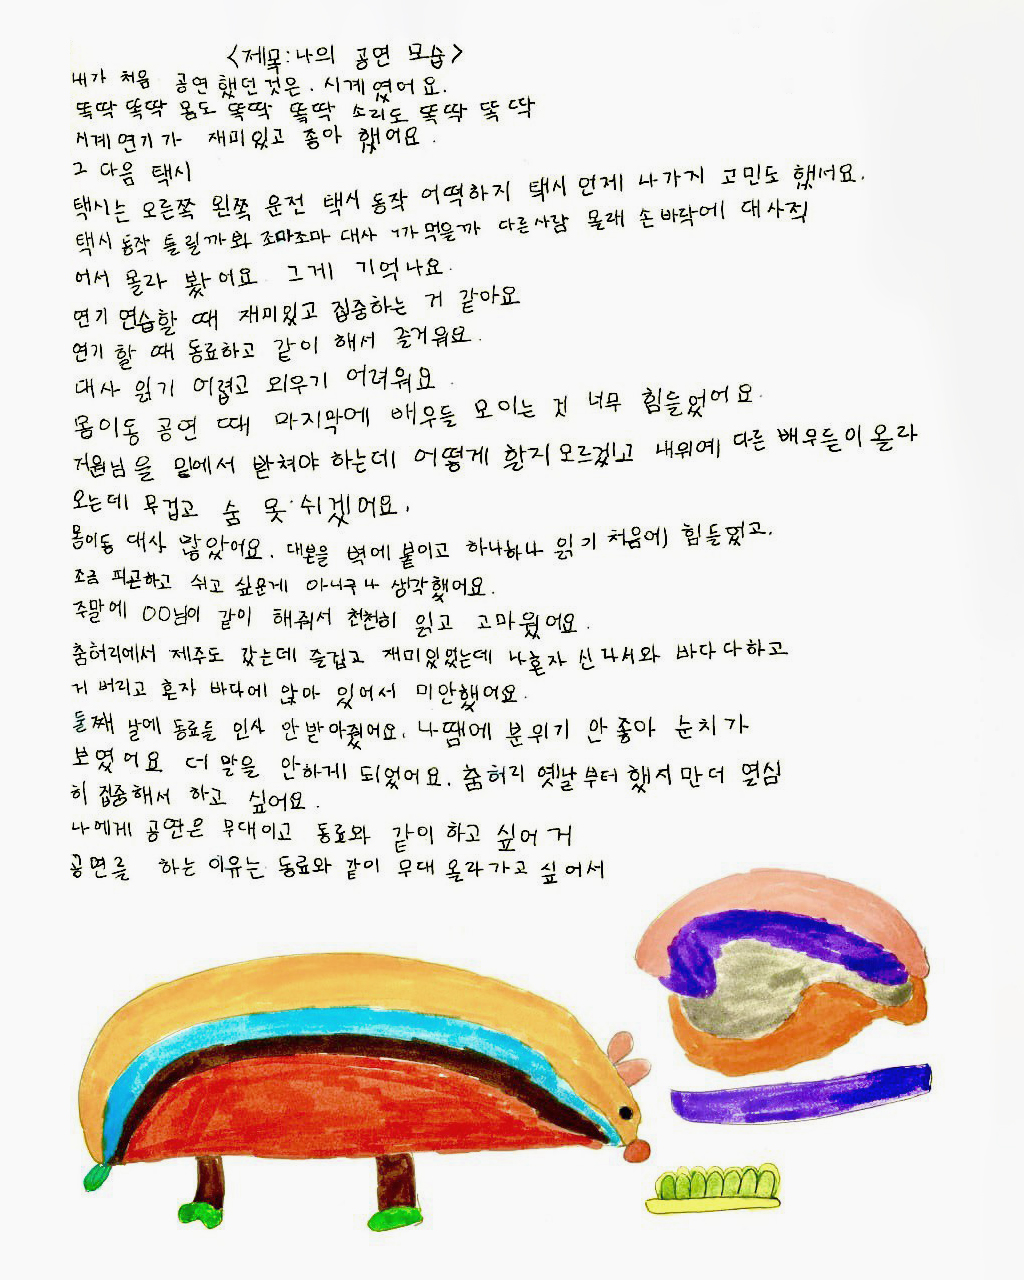 <제목:나의 공연 모습>
내가 처음 공연 했던 것은. 시계 였어요.
똑딱 똑딱 몸도 똑딱 똑딱 소리도 똑딱 똑 딱
시계 연기가 재미있고 좋아 했어요.
그 다음 택시
택시는 오른쪽 왼쪽 운전 택시 동작 어떡하지 택시 언제 나가지 고민도 했어요.
택시 동작 틀릴까봐 조마조마 대사 까먹을까 다른사람 몰래 손바닥에 대사적
어서 몰라 봤어요 그게 기억나요.
연기 연습할 때 재미있고 집중하는 거 같아요
연기 할 때 동료하고 같이 해서 즐거워요.
대사 읽기 어렵고 외우기 어려워요.
몸이동 공연 때 마지막에 배우들 모이는 것 너무 힘들었어요.
거원님을 밑에서 받쳐야 하는데 어떻게 할지 모르겠고 내위에 다른 배우들이 올라
오는데 무겁고 숨 못 쉬겠어요.
몸이동 대사 많았어요. 대본을 벽에 붙이고 하나하나 읽기 처음에 힘들었고.
조금 피곤하고 쉬고 싶은게 아니구나 생각했어요.
주말에 OO님이 같이 해줘서 천천히 읽고 고마웠어요.
춤허리에서 제주도 갔는데 즐겁고 재미있었는데 나혼자 신나서와 바다 다하고
거 버리고 혼자 바다에 앉아 있어서 미안했어요.
둘째 날에 동료들 인사 안받아줬어요. 나땜에 분위기 안좋아 눈치가
보였어요 더 말을 안하게 되었어요. 춤허리 옛날부터 했지만 더 열심
히 집중해서 하고 싶어요.
나에게 공연은 무대이고 동료와 같이 하고 싶어 거
공연를 하는 이유는 동료와 같이 무대 올라가고 싶어서